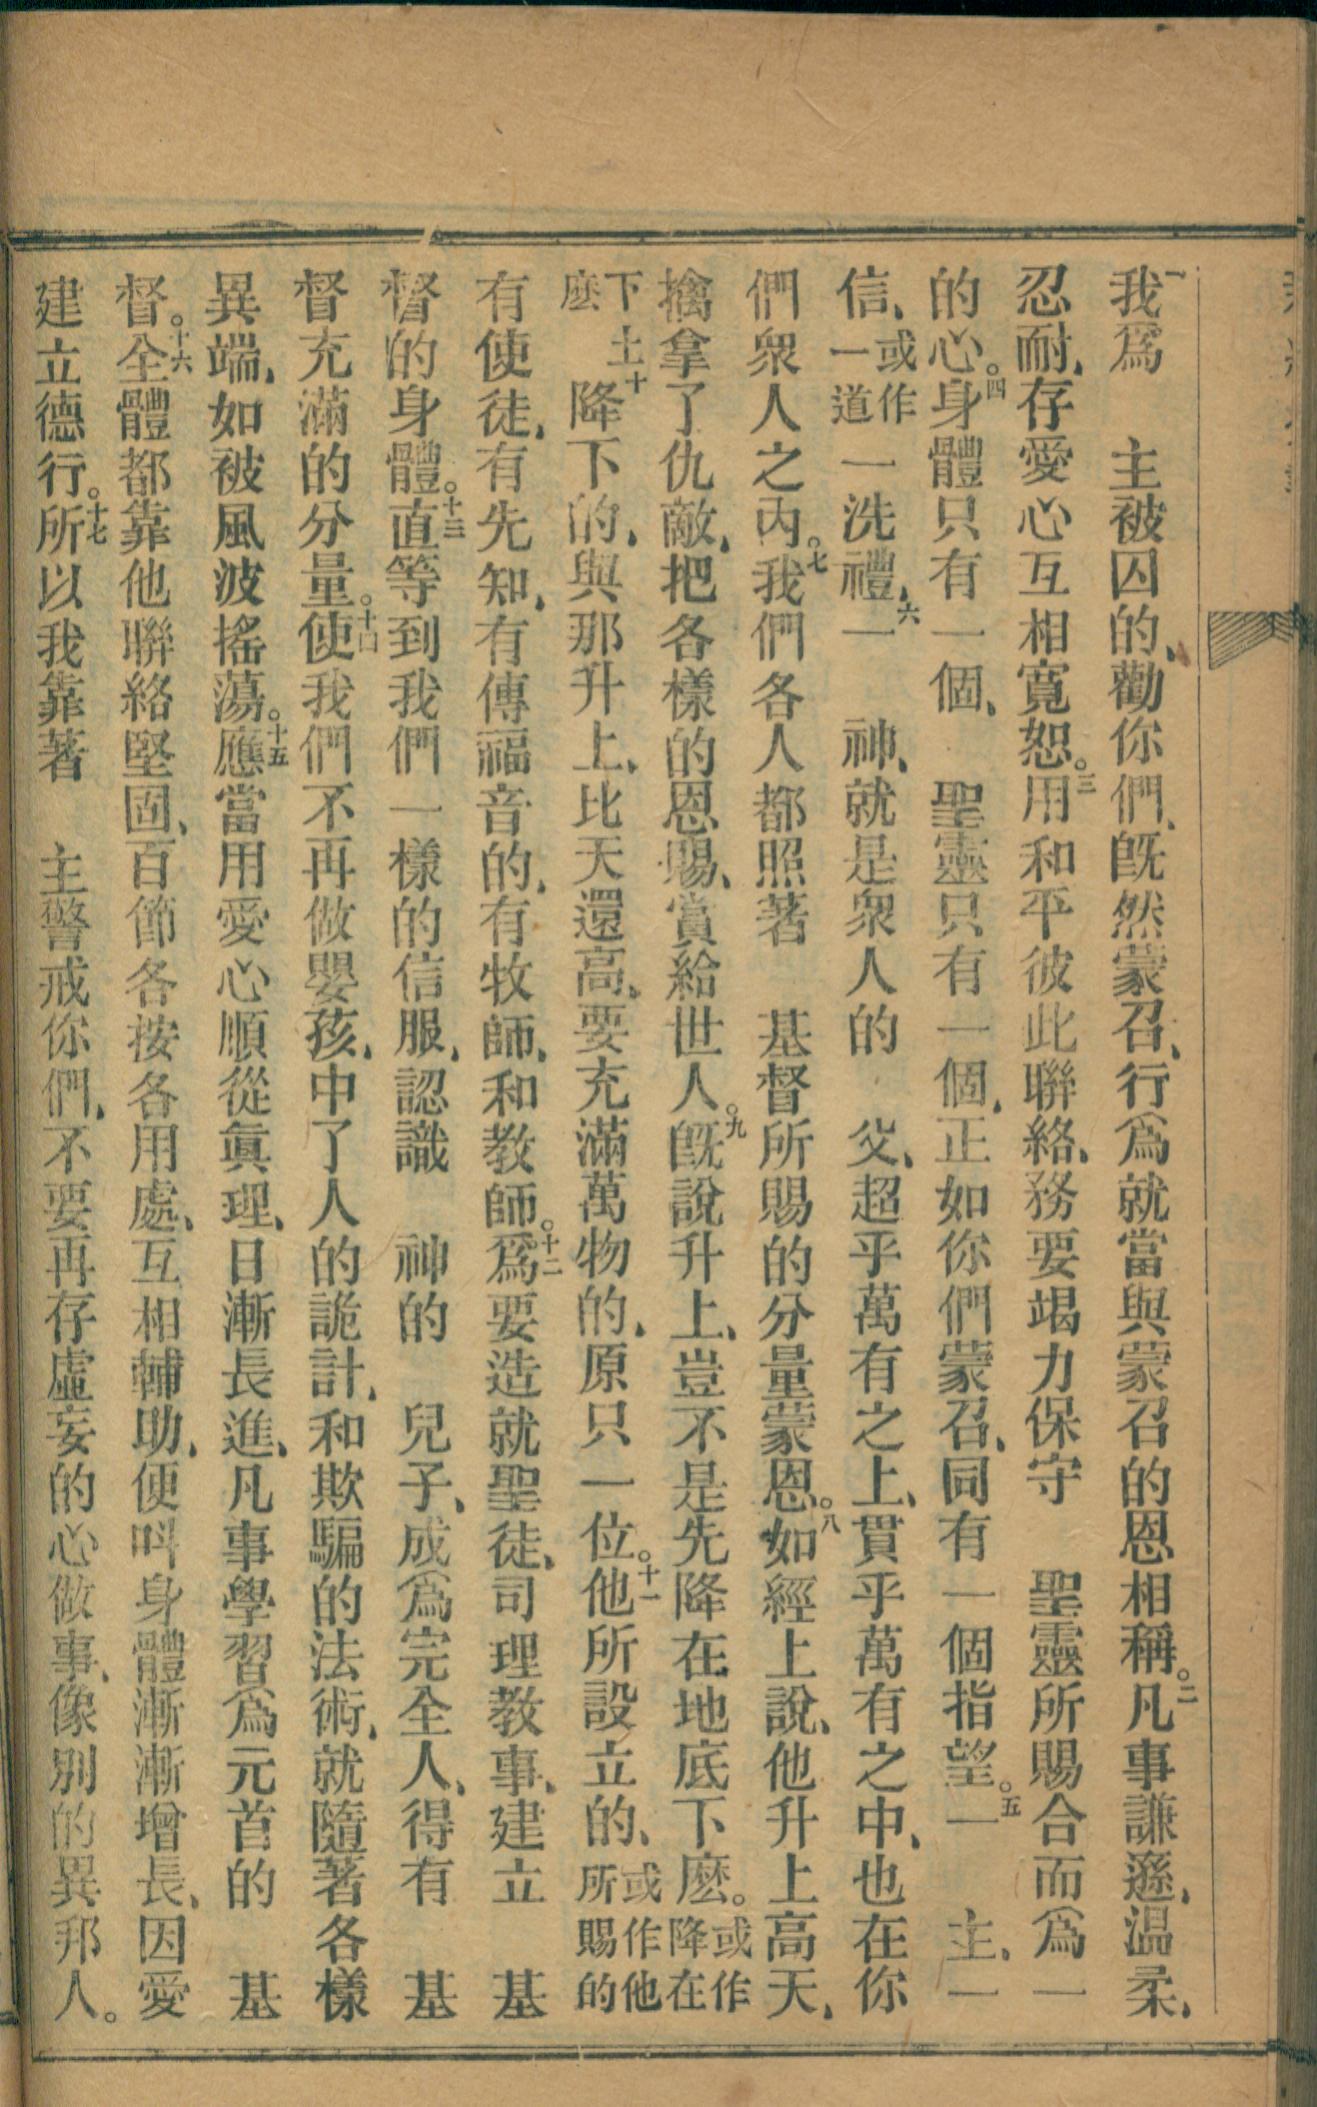 一我爲　主被囚的、勸你們、旣然蒙召、行爲就當與蒙召的恩相稱。二凡事謙遜、温柔、
忍耐、存愛心互相寬恕。三用和平彼此聯絡、務要竭力保守　聖靈所賜合而爲一
的心。四身體只有一個、　聖靈只有一個、正如你們蒙召、同有一個指望。五一　主、一
信、或作一道一洗禮、六一　神、就是衆人的　父、超乎萬有之上、貫乎萬有之中、也在你
們衆人之內。七我們各人都照著　基督所賜的分量蒙恩。八如經上說、他升上高天、
擒拿了仇敵、把各樣的恩賜、賞給世人。九旣說升上、豈不是先降在地底下麽。或作降在
下土麽十降下的、與那升上、比天還高、要充滿萬物的、原只一位。十一他所設立的、或作他所賜的
有使徒、有先知、有傳福音的、有牧師、和教師。十二爲要造就聖徒、司理教事、建立　基
督的身體。十三直等到我們一樣的信服、認識　神的　兒子、成爲完全人、得有　基
督充滿的分量。十四使我們不再做嬰孩、中了人的詭計、和欺騙的法術、就隨著各樣
異端、如被風波搖蕩。十五應當用愛心順從眞理、日漸長進、凡事學習爲元首的　基
督。十六全體都靠他聯絡堅固、百節各按各用處、互相輔助、便叫身體漸漸增長、因愛
建立德行。十七所以我靠著　主警戒你們、不要再存虛妄的心做事、像別的異邦人。